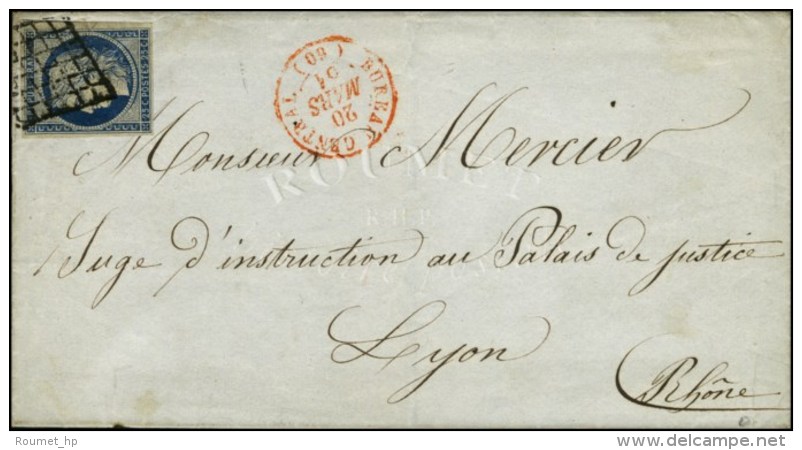 BUREAU CENTRAL (60)
20
MARS
51
Monsieur Mercier
Juge d'instruction au Palais de justice
Lyon
Rhône
ROUMET
Roumet_hp
delcampe.net